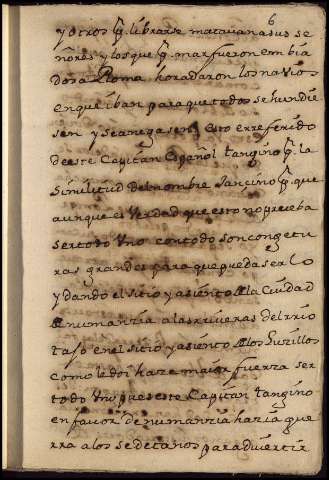 6
y otros q̃. librarse matavan a sus se
ñores y los que q̃. mar fueron embia
dos a Roma horadaron los navios
en que iban para que todos se hundie
sen y se anegasen esto e rreferido
de este Capitán Español tangino q̃. la
Similitud del nombre Sancino q̃. que
aunque es Verdad que esto no prueba
ser todo Uno con todo son congetu
ras grandes para que pueda ser lo
y dando el sitio y asiento a la Ciudad
de numanzia a las rriveras del rrio
taJo en el sitio y asiento de los Luzillos
como le doi haze maior fuerza ser
todo Uno pues este Capitán tangino
en favor de numanzia hazia gue
rra a los sedetanos para divertir